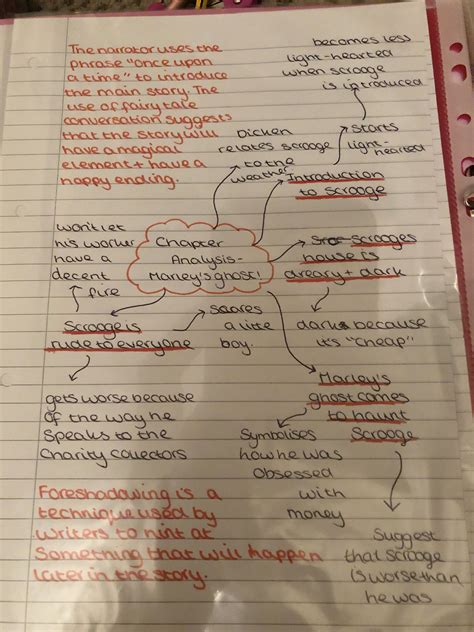 The narrator uses the
phrase "once upon
a time" to introduce
the main story. The
use of fairytale
conversation suggests
that the story will
have a magical
element + have a
happy ending.
becomes less
light-hearted
when scrooge
is introduced
starts
light-
hearted
Dicken
relates scrooge
to the
weather
Introduction
to scrooge
Chapter
Analysis-
Marley's ghost!
won't let
his worker
have a
decent
fire
Scrooges
house is
dreary + dark
dark because
it's "cheap"
Scrooge is
rude to everyone
Scares
a litte
boy.
gets worse because
of the way he
speaks to the
charity collectors
Marley's
ghost comes
to haunt
Scrooge
Symbolises
how he was
obsessed
with
money
Suggest
that scrooge
is worse than
he was
Foreshadowing is a
technique used by
writers to hint at
something that will happen
later in the story.